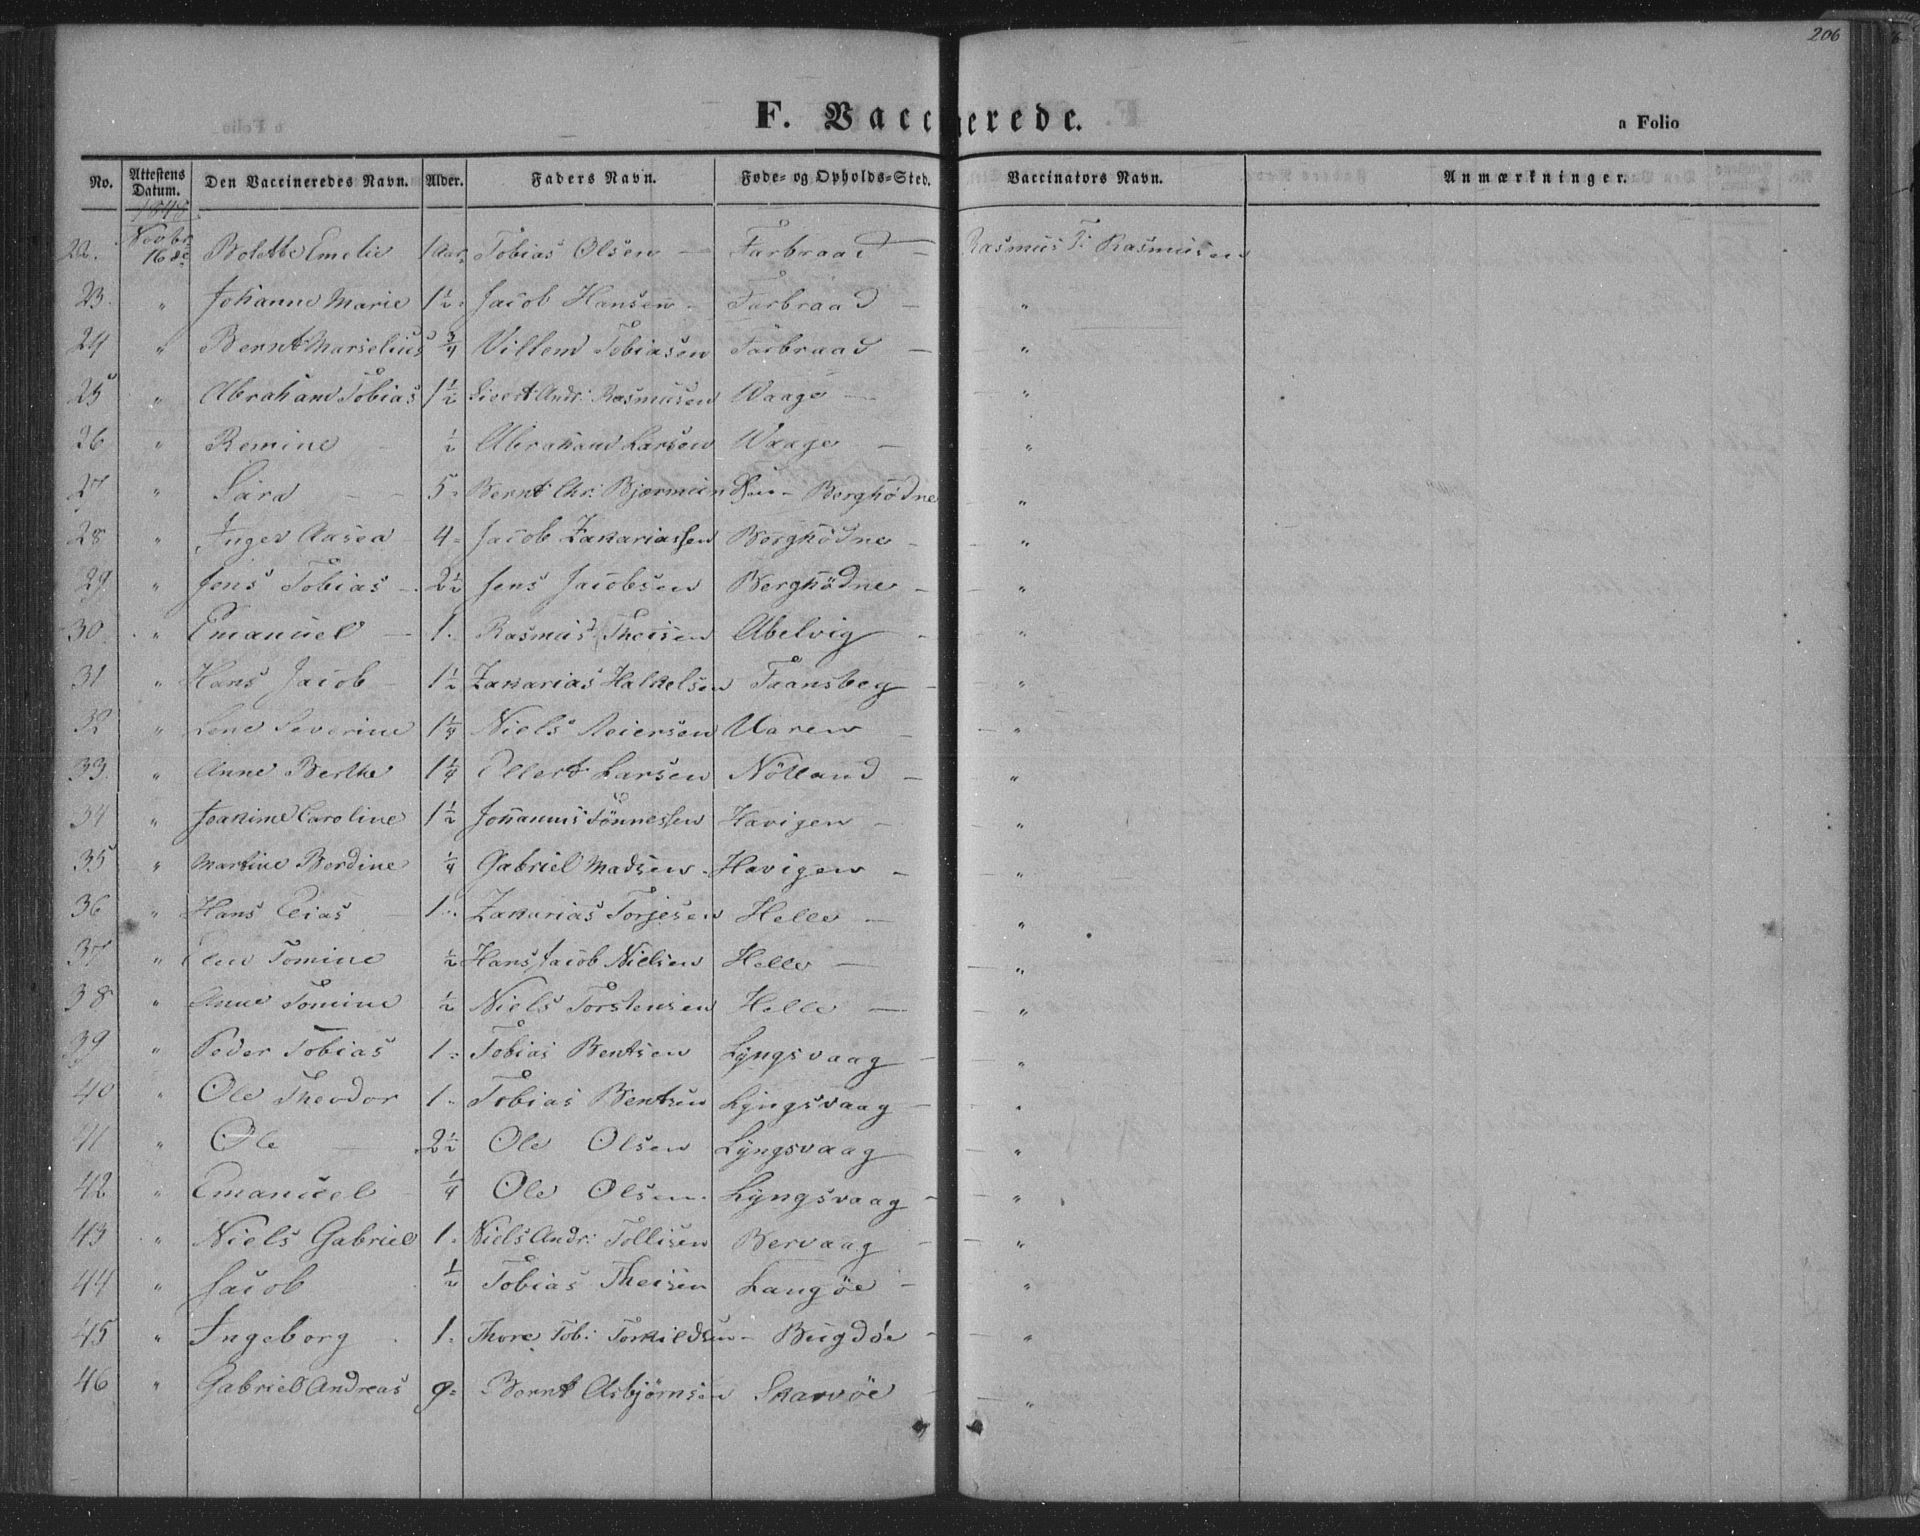 206
F. Vaccinerede.
a Folio
No. Attestens Datum. Den Vaccineredes Navn. Alder. Faders Navn. Føde- og Opholds-Sted. Vaccinators Navn. Anmærkninger.
1848
22. Novbr 16de Bolette Emelie 1 Aar Tobias Olsen — Farbraad — Rasmus T: Rasmusen
23. " Johanne Marie 1½ Jacob Hansen - Farbraad — "
24 " Bernt Marselius ¾ Villem Tobiasen Farbraad — "
25 " Abraham Tobias 1½ Sivert Andr: Rasmusen Waage — "
26 " Remine - ½ Abraham Larsen Waage — "
27 " Sara — - 5 Bernt Chr: Bjørnsen - Berghödne "
28 " Inger Aasea - 4 Jacob Zakariassen Berghödne - "
29 " Jens Tobias - 2½ Jens Jacobsen Berghödne - "
30 " Emanuel — 1. Rasmus Theisen Abelvig - "
31 " Hans Jacob - 1½ Zakarias Halkelsen Faansbeg - "
32 " Lene Severine 1¼ Niels Reiersen Uaren — "
33. " Anne Berthe 1¼ Ellert Larsen Nölland — "
34 " Joakime Caroline 1½ Johannis Tönnessen Havigen — "
35 " Martine Bordine ¼ Gabriel Madsen. Havigen — "
36 " Hans Elias — 1 Zakarias Torjesen Helle — "
37 " Elen Tomine ½ Hans Jacob Nielsen Helle — "
38 " Anne Tomine ½ Niels Torstensen Helle — "
39 " Peder Tobias 1 Tobias Bentsen Lyngsvaag — "
40 " Ole Theodor 1 Tobias Bentsen Lyngsvaag — "
41 " Ole — 2½ Ole Olsen Lyngsvaag "
42 " Emanuel - ¼ Ole Olsen. Lyngsvaag - "
43 " Niels Gabriel 1. Niels Andr: Tollisen Bervaag - "
44 " Jacob ½ Tobias Theisen Langöe - "
45 " Ingeborg . 1. Thore Tob: Torkildsen - Bugdöe - "
46 " Gabriel Andreas 9 Bernt Asbjørnsen Skarvöe "